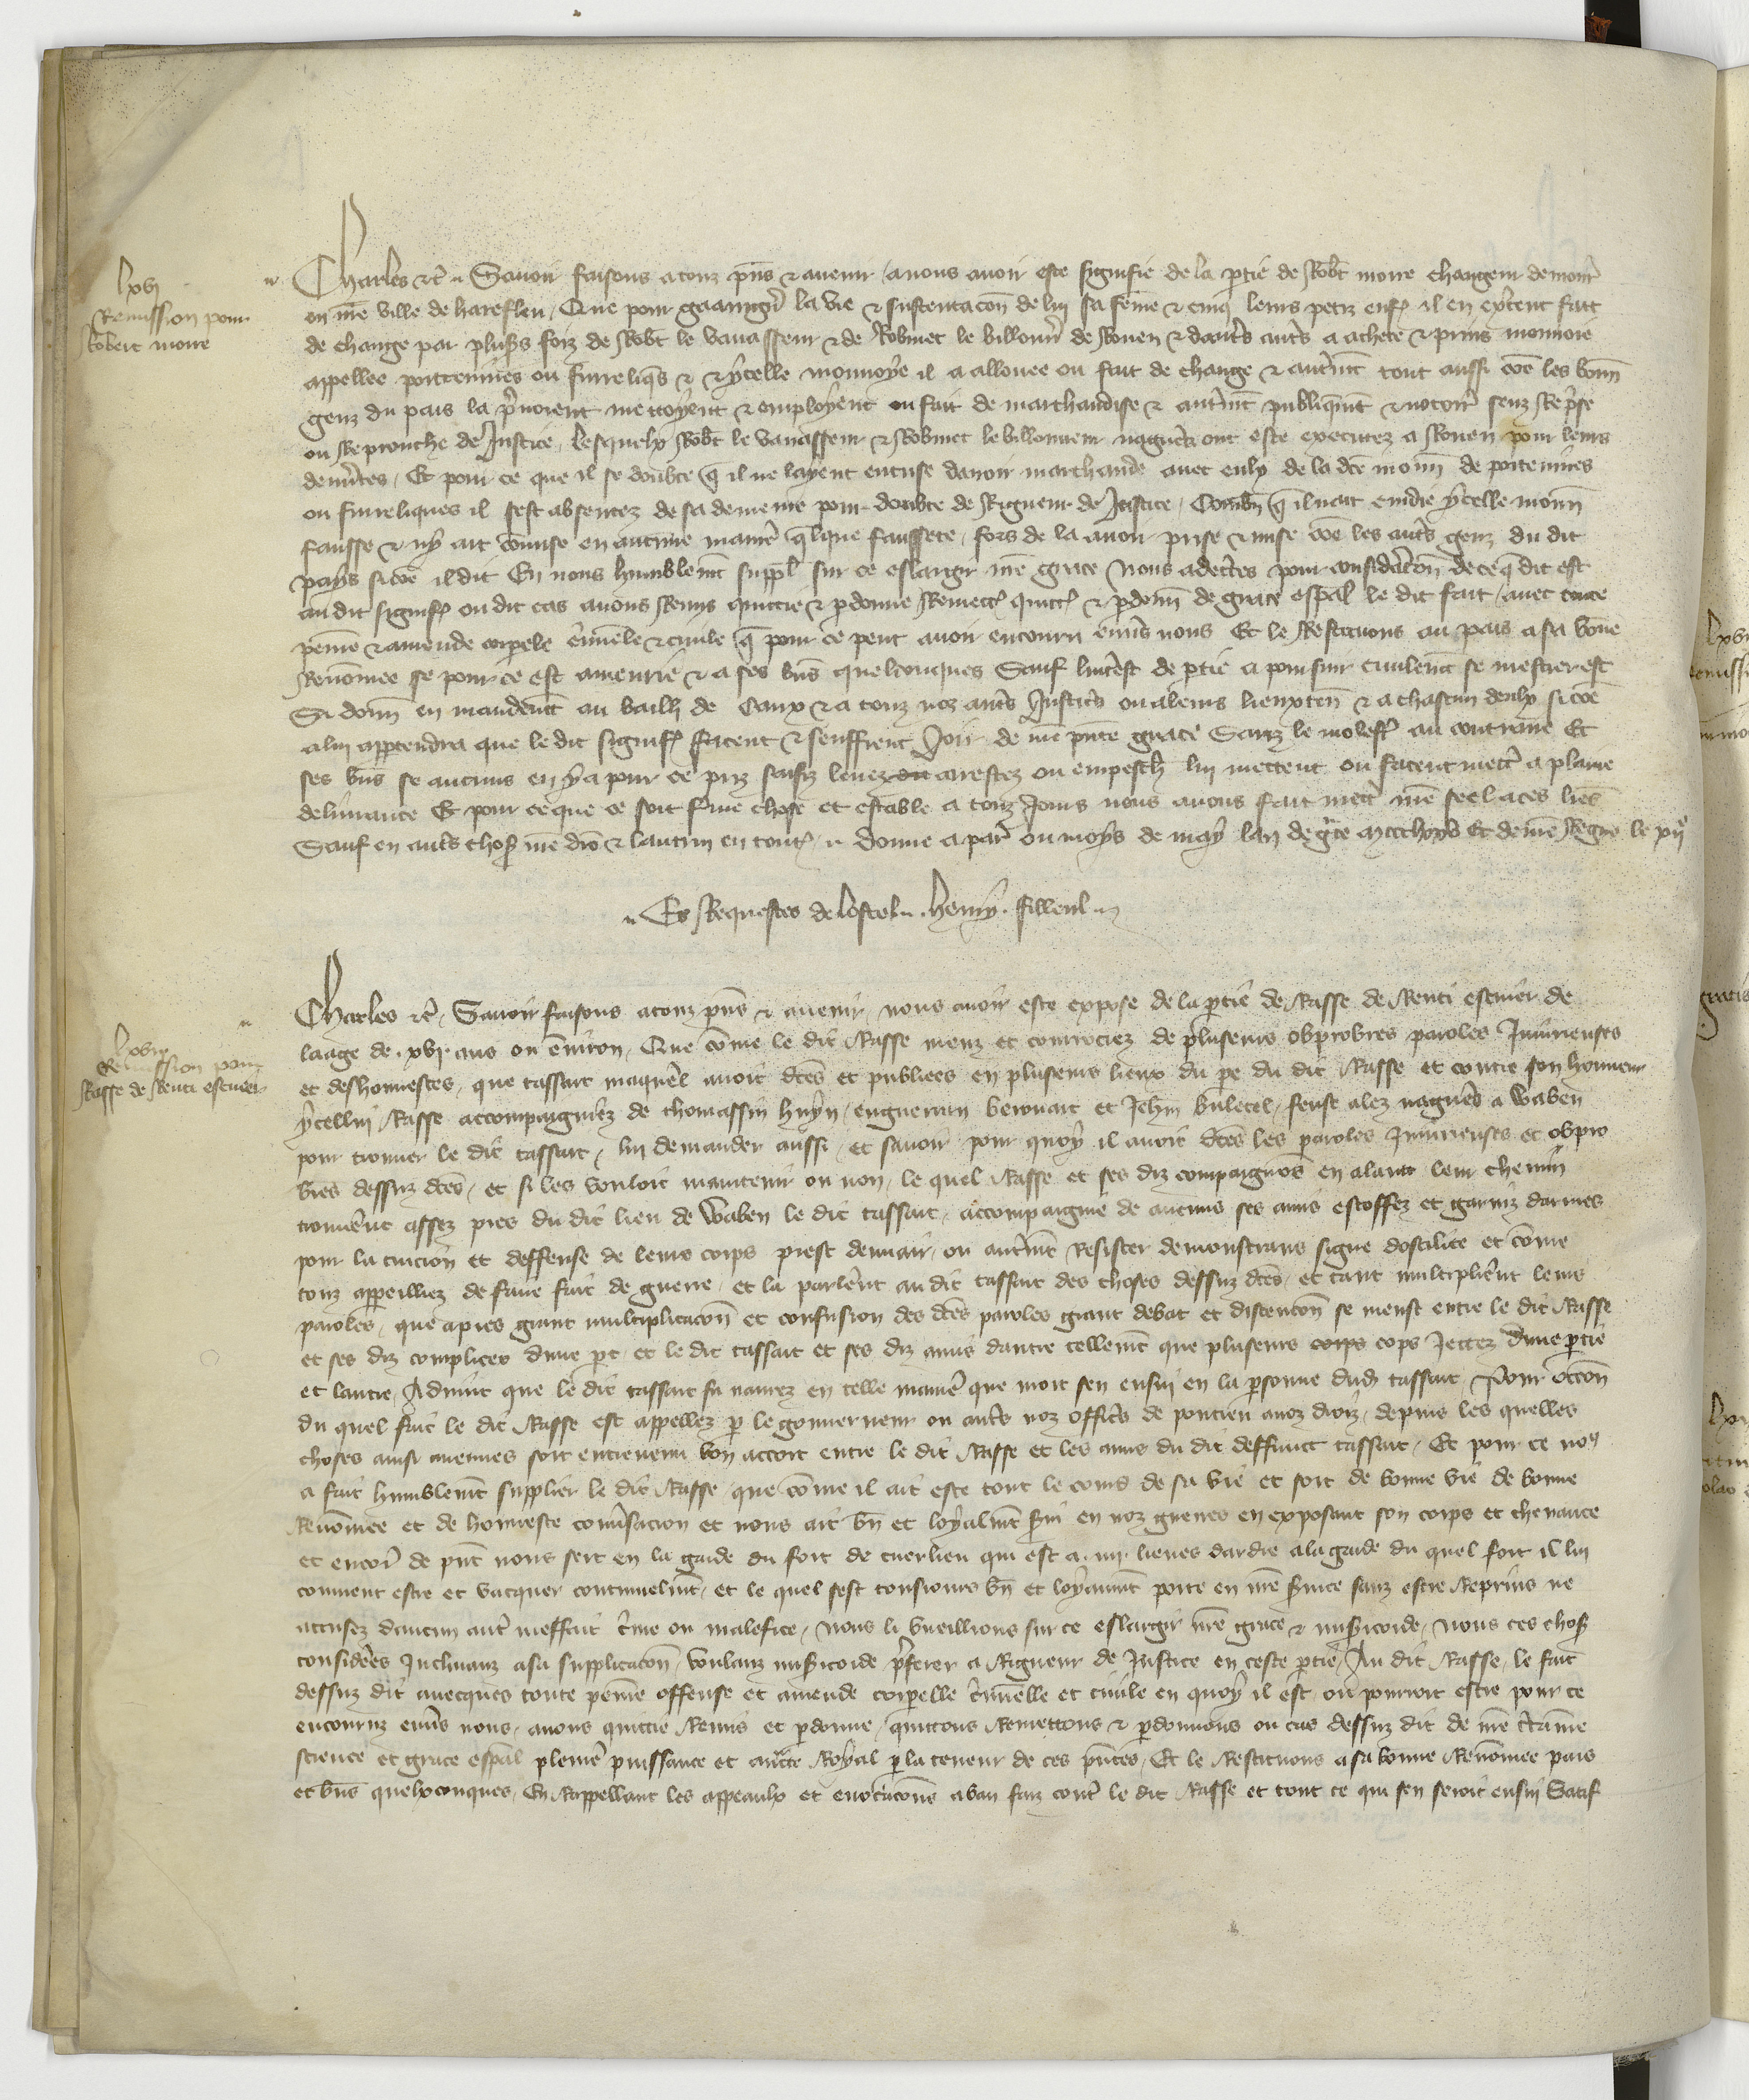 lxvj
Remission pour
Robert more
Charles etc. Savoir faisons a touz pñs & avenir a nous avoir este signifie de la ptie de Robt more changeur demourr
en nr̃e ville de harefleu, Que pour gaaingnr̃ la vie & sustentacõn de lui sa feme & cinq leurs petiz enfz il en exc̃ent fait
de change par plus̃s foiz de Robt le vavasseur & de Robinet le billonñ de Rouen & daut̃s a achete & prins monnoie
appellee poitevines ou & ycelle monnoye il a allouee ou fait de change & aut̃mt tout aussi cõe les bonñ
genz du pais la p̃noient mettoyent & employent ou fait de marchandise & aut̃mt publiqmt & notoir̃ senz Rep̃se
ou Reprouche de Justice, lesquelx Robt le vavasseur & Robinet le billonneur nagueres ont este executez a Rouen pour leurs
demerites, Et pour ce que il se doubte q̃ il ne layent encuse davoir marchande avec eulx de la dcẽ monñ de poitevines
ou il sest absentez de sa demeure pour doubte de Rigueur de Justice, Combñ q̃ il nait ycelle monñ
fausse & ny ait comise en aucune manier̃ q̃lque faussete, fors de la avoir prise & mise cõe les aut̃s genz du dit
pays sicõe il dit En nous humblemt suppl̃ sur ce eslargir nr̃e grace Nous adec̃tes pour consideracõn de ce q̃ dit est
au dit signifz ou dit cas avons Remis quictie & pdonne Remectz quictz & pdonñ de grace esp̃al le dit fait, avec toute
peine & amende corpele c̃iminele & civile q̃ pour ce peut avoir encouru enṽs nous Et le Restituons au pais a sa bõne
Renõmee se pour ce est & a ses bñs quelconques Sauf lint̃est de ptie a poursuir civilemt se mestier est
Si donñ en mandemt au bailli de Caux & a touz noz aut̃s Justic̃s ou a leurs lieuxten̄ & a chascun deulx sicõe
a lui appertendra que le dit signifz facent & seuffrent Joir de nr̃e pñte grace Sanz le molestr̃ au contraire Et
ses bñs se aucuns en y a pour ce priz saisiz levez arrestez ou empeschz lui mettent ou facent mectr̃ a plaine
delivrance Et pour ce que ce soit ferme chose et estable a touz Jours nous avons fait mectr̃ nr̃e seel a ces lres̃
Sauf en aut̃s chosz nr̃e droit & lautrui en toutz. Donne a paris ou moys de may lan de grace & de nr̃e Regne le xijᵉ
Es Requestes de lostel. Henry. Filleul
lxvij
Remission pour
Rasse de Renti escuier
Charles etc. Savoir faisons a touz pñs & avenir, nous avoir este expose de la ptie de Rasse de Renti escuier de
laage de .xvj. ans ou environ, Que cõme le dit Rasse meuz et courrociez de pluseurs obprobres paroles Iniurieuses
et deshonnestes, que tassart maquerel avoit dc̃es et publiees en pluseurs lieux du pe du dit Rasse et contre son honneur
ycellui Rasse accompaigniez de thomassin huyn, enguerran bernart et Jehñ buletel, feust alez naguer̃s a Waben
pour trouver le dit tassart, lui demander aussi, et savoir pour quoy il avoit dc̃es les paroles Iniurieuses et obpro
bres dessuz dc̃es, et si les vouloit maintenir ou non, le quel Rasse et ses diz compaignõs en alant leur chemin
trouver̃nt assez pres du dit lieu de Waben le dit tassart, accompaignie de aucuns ses amis estoffez et garniz darmes
pour la tuicion et deffense de leurs corps prest denvair, ou autr̃mt Resister demonstrans signe dostilite et cõme
touz appeilliez de faire fait de guerre, et la parler̃nt au dit tassart des choses dessuz dc̃es, et tant multiplier̃nt leurs
paroles, que apres grant multiplicacõn et confusion des dc̃es paroles grant debat et discencõn se meust entre le dit Rasse
et ses diz complices dune pt, et le dit tassart et ses diz amis dautre tellemt que pluseurs cops Jettez dune ptie
et lautre, Advint que le dit tassart fu navrez en telle manier̃ que mort sen ensui en la psonne dud tassart, Pour occõn
du quel fait le dit Rasse est appellez p le gouverneur ou autr̃s noz offic̃s de pontieu a noz droiz, depuis les quelles
choses ainsi avenues soit entrevenu bon accort entre le dit Rasse et les amis du dit deffunct tassart, Et pour ce nous
a fait humblemt supplier le dit Rasse, que cõme il ait este tout le cours de sa vie et soit de bonne vie de bonne
Renõmee et de honneste conṽsacion et nous ait bñ et loyalmt s̃vi en noz guerres en exposant son corps et chevance
et encor̃ de pñt nous sert en la garde du fort de tuerlieu qui est a .iiij. lieues dardre a la garde du quel fort il lui
convient estre et vacquer continuelmt, et le quel sest tousiours bñ et loyaumt porte en nr̃e s̃vice sanz estre Reprins ne
accusez daucun autr̃ meffait c̃ime ou malefice, nous li vueillions sur ce eslargir nr̃e grace & mis̃icorde, Nous ces chosz
consider̃es Inclinanz a sa supplicacõn, voulanz mis̃icorde p̃ferer a Rigueur de Justice en ceste ptie, Au dit Rasse, le fait
dessuz dit avecques toute peine offense et amende corpelle c̃iminelle et civile en quoy il est, ou pourroit estre pour ce
encouruz enṽs nous, avons quictie Remis et pdonne, quictons Remettons & pdonnons ou cas dessuz dit de nr̃e c̃taine
science et grace esp̃al pleniere puissance et auct̃te Royal p la teneur de ces pñtes, Et le Restituons a sa bonne Renõmee pais
et bñs quelxconques, En Rappellant les appeaulx et evocacõns a ban faiz contr̃ le dit Rasse et tout ce qui sen seroit ensui Satif